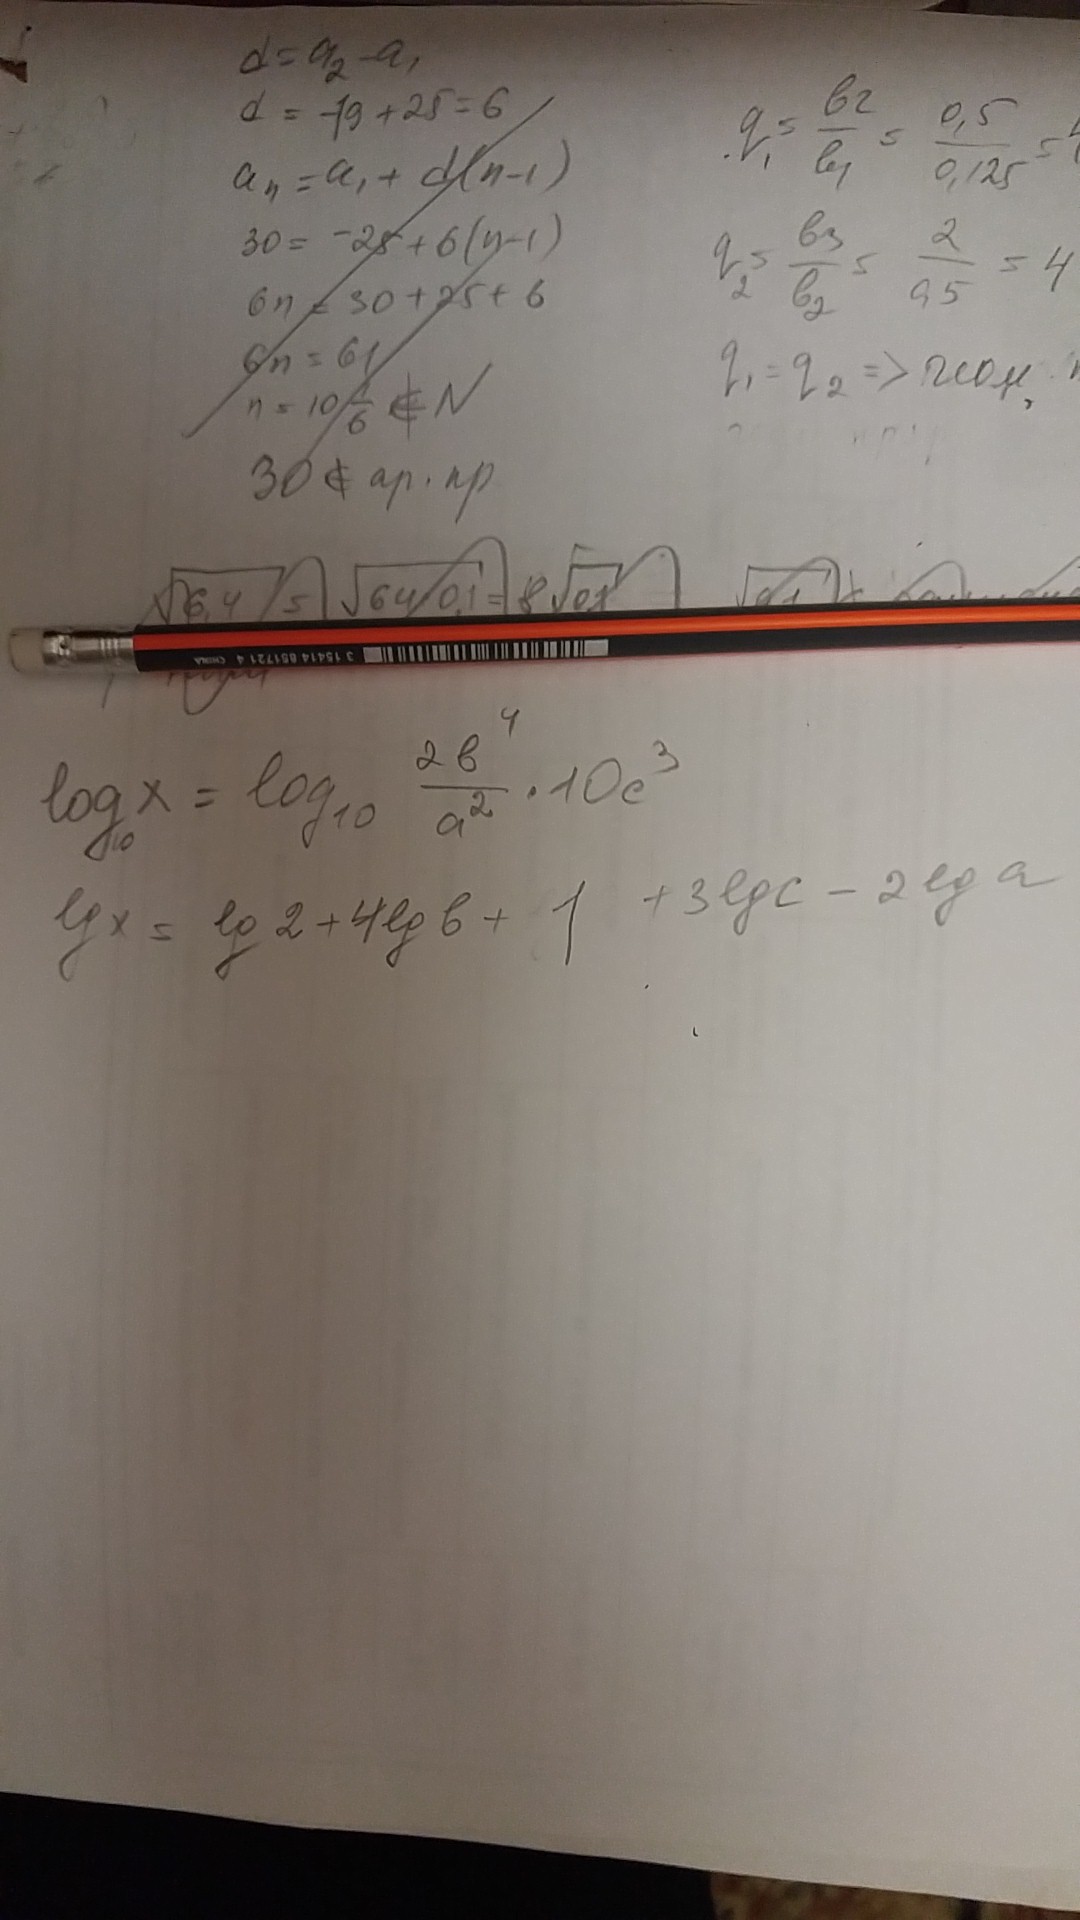 d = a₂ - a₁
d = -19 + 25 = 6
aₙ = a₁ + d(n-1)
30 = -25 + 6(n-1)
6n = 30 + 25 + 6
6n = 61
n = 10 1/6 ∉ N
30 ∉ ар. пр
q₁ = b₂/b₁ = 0,5/0,125 =
q₂ = b₃/b₂ = 2/0,5 = 4
q₁ = q₂ => геом.
√6,4 = √64·0,1 = 8√0,1
3 15414 851721 4 CHINA
log₁₀ x = log₁₀ 2b⁴/a² · 10c³
lg x = lg 2 + 4lg b + 1 + 3lg c - 2lg a